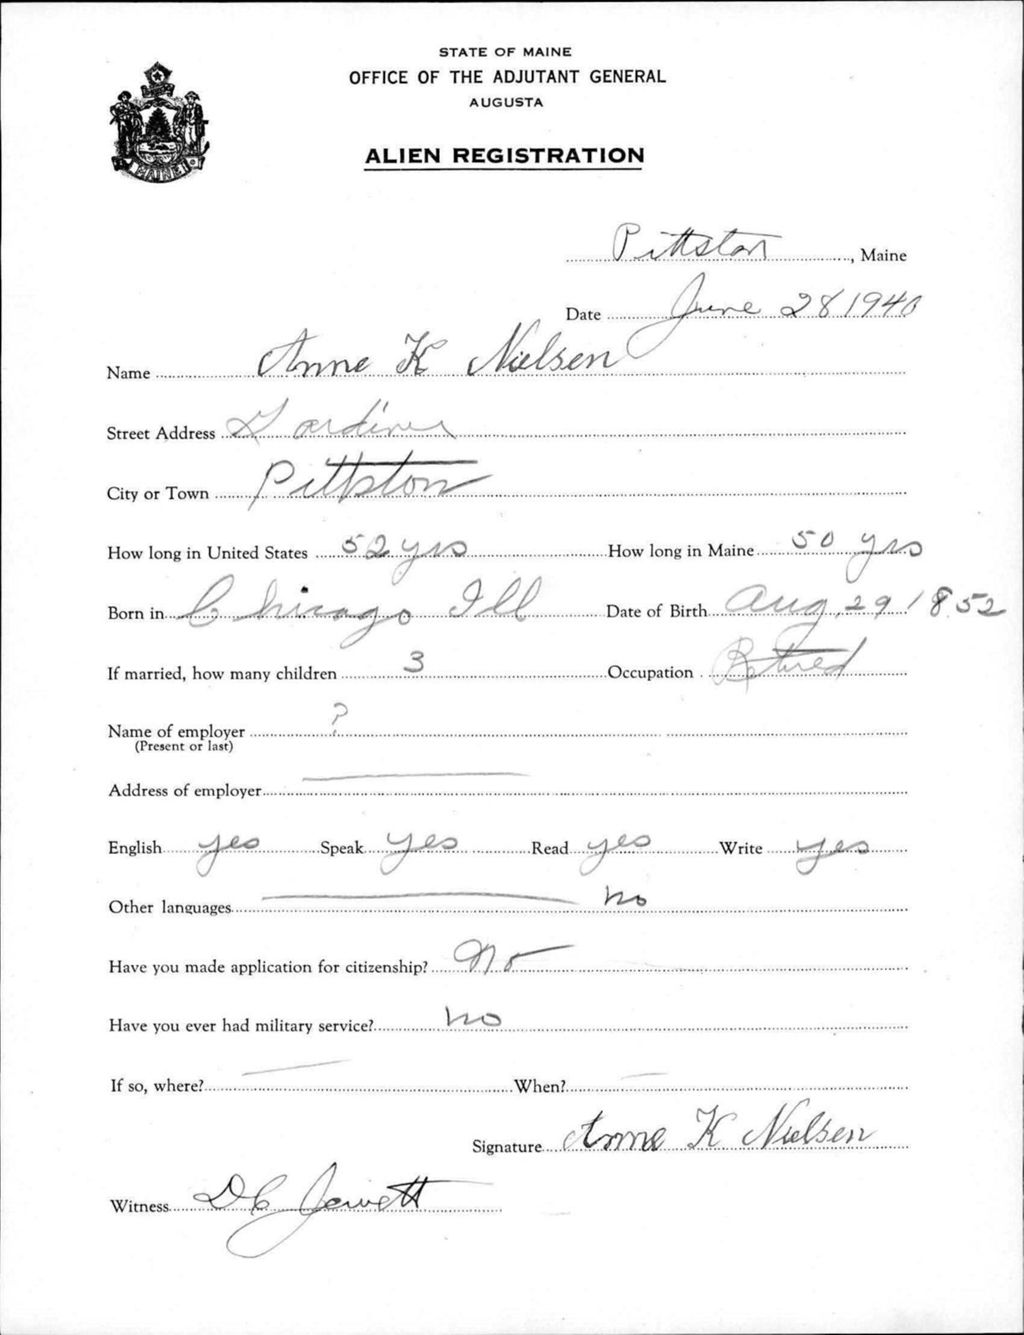 STATE OF MAINE
OFFICE OF THE ADJUTANT GENERAL
AUGUSTA
ALIEN REGISTRATION
MAINE
Pittston, Maine
Date June 28 1940
Name Anne K Nielsen
Street Address Gardiner
City or Town Pittston
How long in United States 52 yrs How long in Maine 50 yrs
Born in Chicago Ill Date of Birth Aug, 29, 1852
If married, how many children 3 Occupation Retired
Name of employer ?
(Present or last)
Address of employer
English yes Speak yes Read yes Write yes
Other languages no
Have you made application for citizenship? No
Have you ever had military service? no
If so, where? When?
Signature Anne K Nielsen
Witness D C Jewett